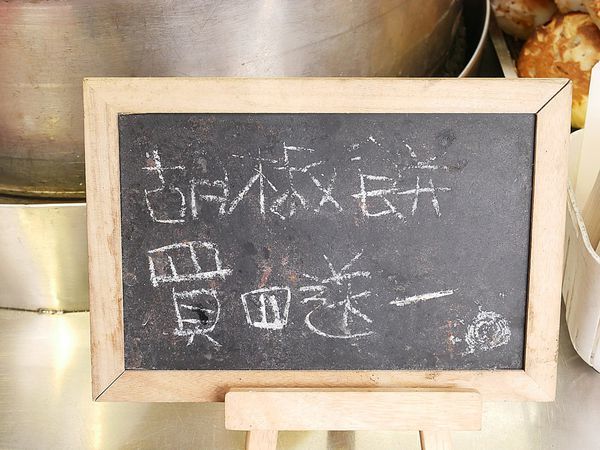 胡椒餅
買四送一